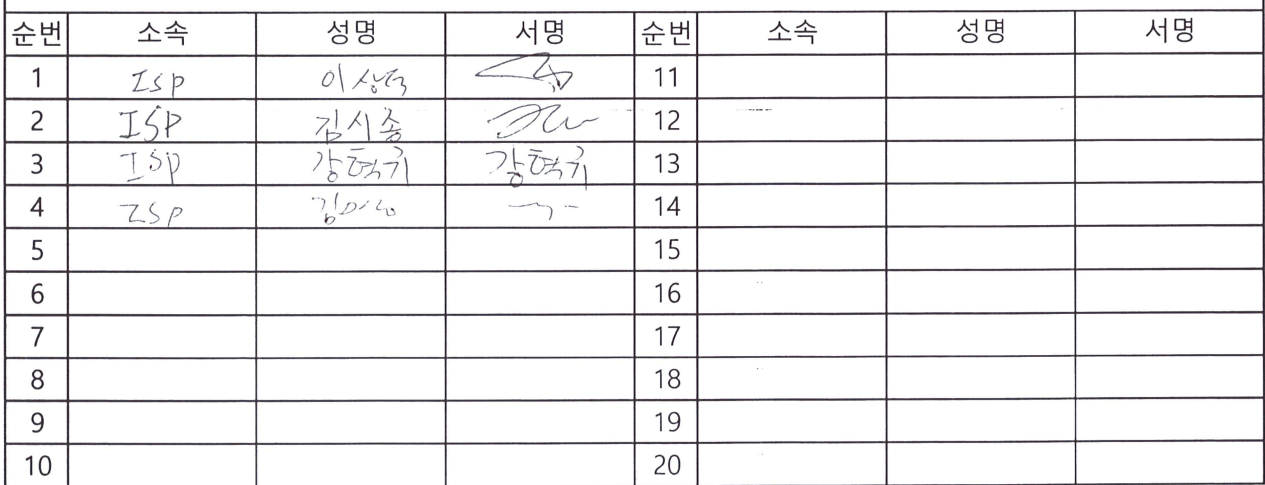 순번 소속 성명 서명 순번 소속 성명 서명
1 ISP 11
2 ISP 김시종 12
3 ISP 강혁귀 강혁귀 13
4 ISP 14
5 15
6 16
7 17
8 18
9 19
10 20